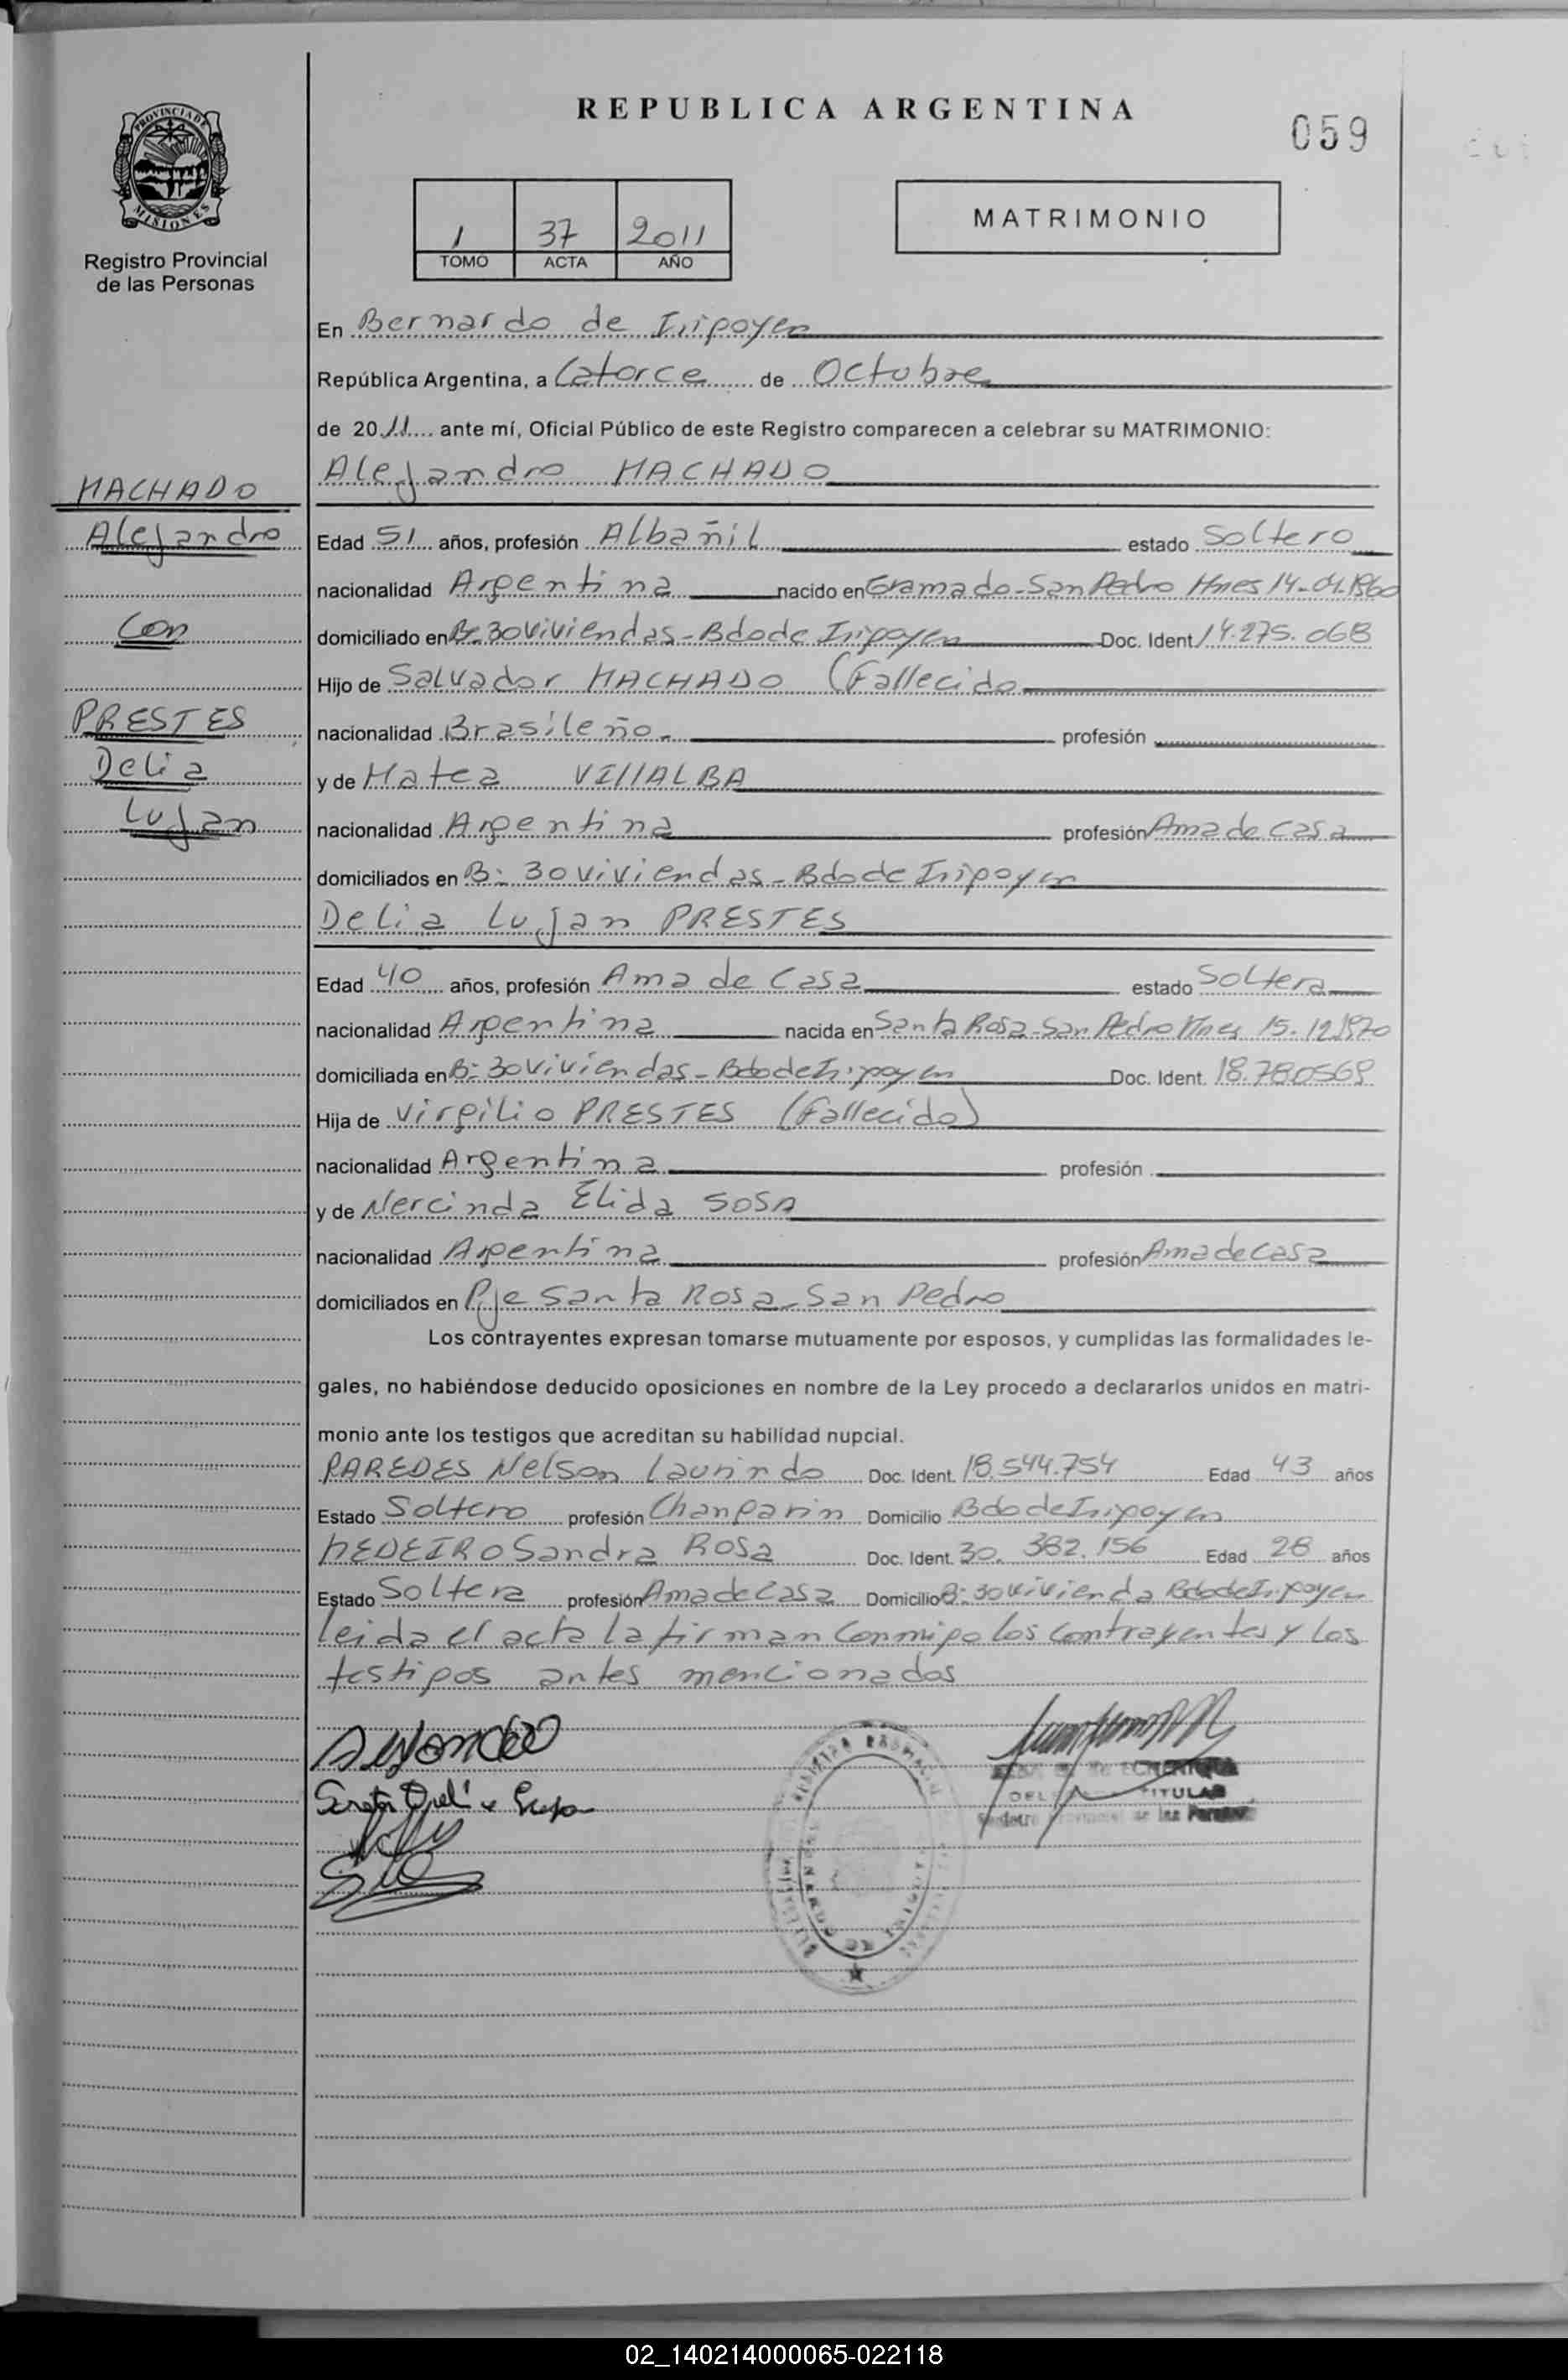 REPUBLICA ARGENTINA
059
PROVINCIA DE MISIONES
Registro Provincial
de las Personas
1 37 2011
TOMO ACTA AÑO
MATRIMONIO
En Bernardo de Irigoyen
República Argentina, a Catorce de Octubre
de 2011 ante mí, Oficial Público de este Registro comparecen a celebrar su MATRIMONIO:
MACHADO
Alejandro
con
PRESTES
Delia
Lujan
Alejandro MACHADO
Edad 51 años, profesión Albañil estado Soltero
nacionalidad Argentina nacido en Gramado-San Pedro Mnes 14-01-1960
domiciliado en B: 30 viviendas-Bdo de Irigoyen Doc. Ident. 14.275.068
Hijo de Salvador MACHADO (Fallecido
nacionalidad Brasileño. profesión
y de Matea VIllALBA
nacionalidad Argentina profesión Ama de casa
domiciliados en B: 30 viviendas-Bdo de Irigoyen
Delia Lujan PRESTES
Edad 40 años, profesión Ama de Casa estado Soltera
nacionalidad Argentina nacida en Santa Rosa-San Pedro Mnes 15.12.1970
domiciliada en B: 30 viviendas-Bdo de Irigoyen Doc. Ident. 18.780569
Hija de Virgilio PRESTES (Fallecido)
nacionalidad Argentina profesión
y de Nercinda Elida SOSA
nacionalidad Argentina profesión Ama de casa
domiciliados en Pje Santa Rosa-San Pedro
Los contrayentes expresan tomarse mutuamente por esposos, y cumplidas las formalidades le-
gales, no habiéndose deducido oposiciones en nombre de la Ley procedo a declararlos unidos en matri-
monio ante los testigos que acreditan su habilidad nupcial.
PAREDES Nelson Laurindo Doc. Ident. 18.544.754 Edad 43 años
Estado Soltero profesión Changarin Domicilio Bdo de Irigoyen
MEDEIRO Sandra Rosa Doc. Ident. 30.382.156 Edad 28 años
Estado Soltera profesión Ama de casa Domicilio B: 30 vivienda Bdo de Irigoyen
leida el acta la firman conmigo los contrayentes y los
testigos antes mencionados
TITULAR
de las Personas
02_140214000065-022118